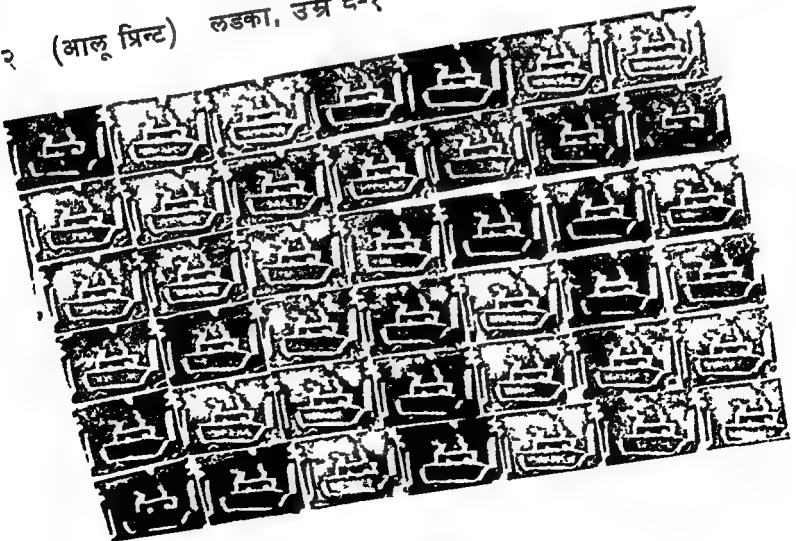 २ (आलू प्रिन्ट) लडका, उम्र ८-९